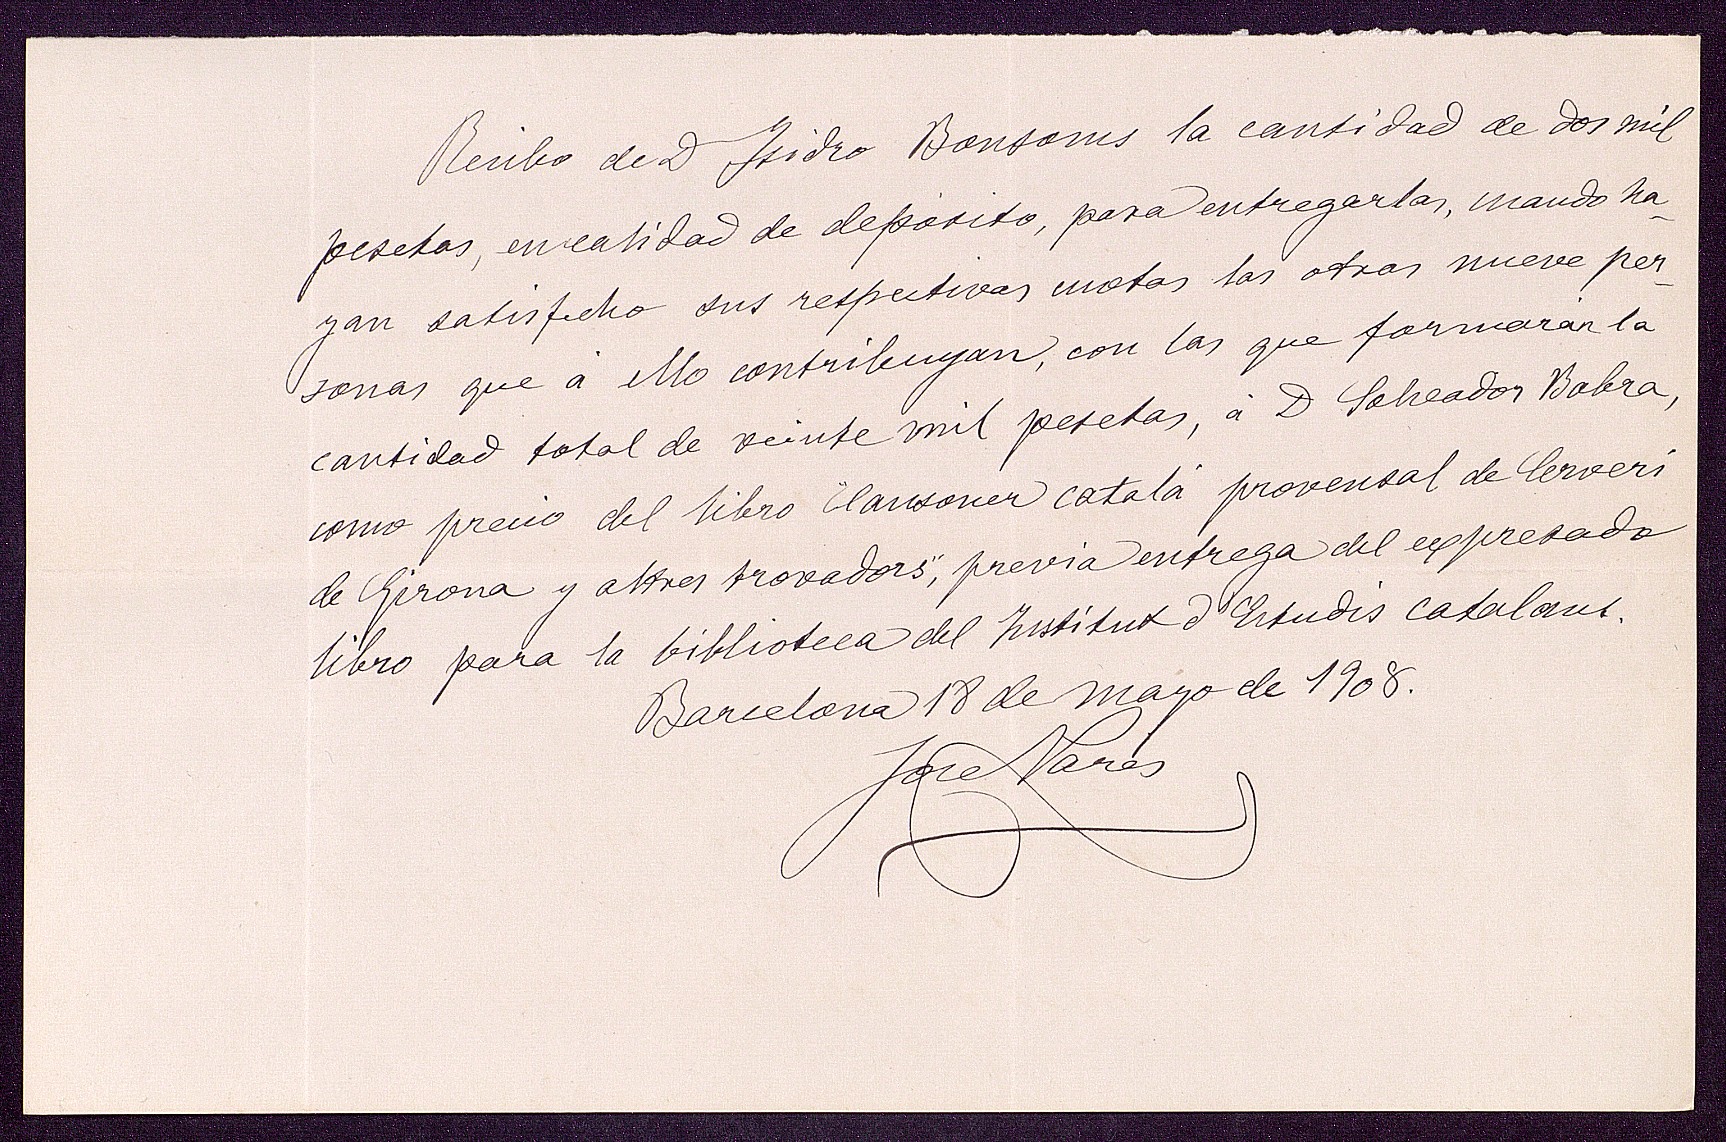 Recibo de D Isidro Bonsoms la cantidad de dos mil
pesetas, en calidad de depósito, para entregarlas, cuando ha-
yan satisfecho sus respectivas cuotas las otras nueve per-
sonas que á ello contribuyan, con las que formarán la
cantidad total de veinte mil pesetas, á D Salvador Babra,
como precio del libro "Cansoner catalá provensal de Cerverí
de Girona y altres trovadors", previa entrega del expresado
libro para la biblioteca del Institut d'Estudis catalans.
Barcelona 18 de mayo de 1908.
Jose Narés